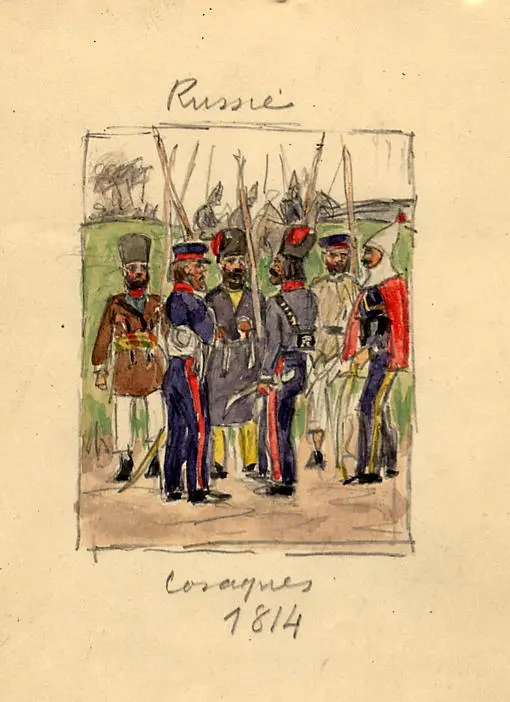 Russie
Cosaques
1814